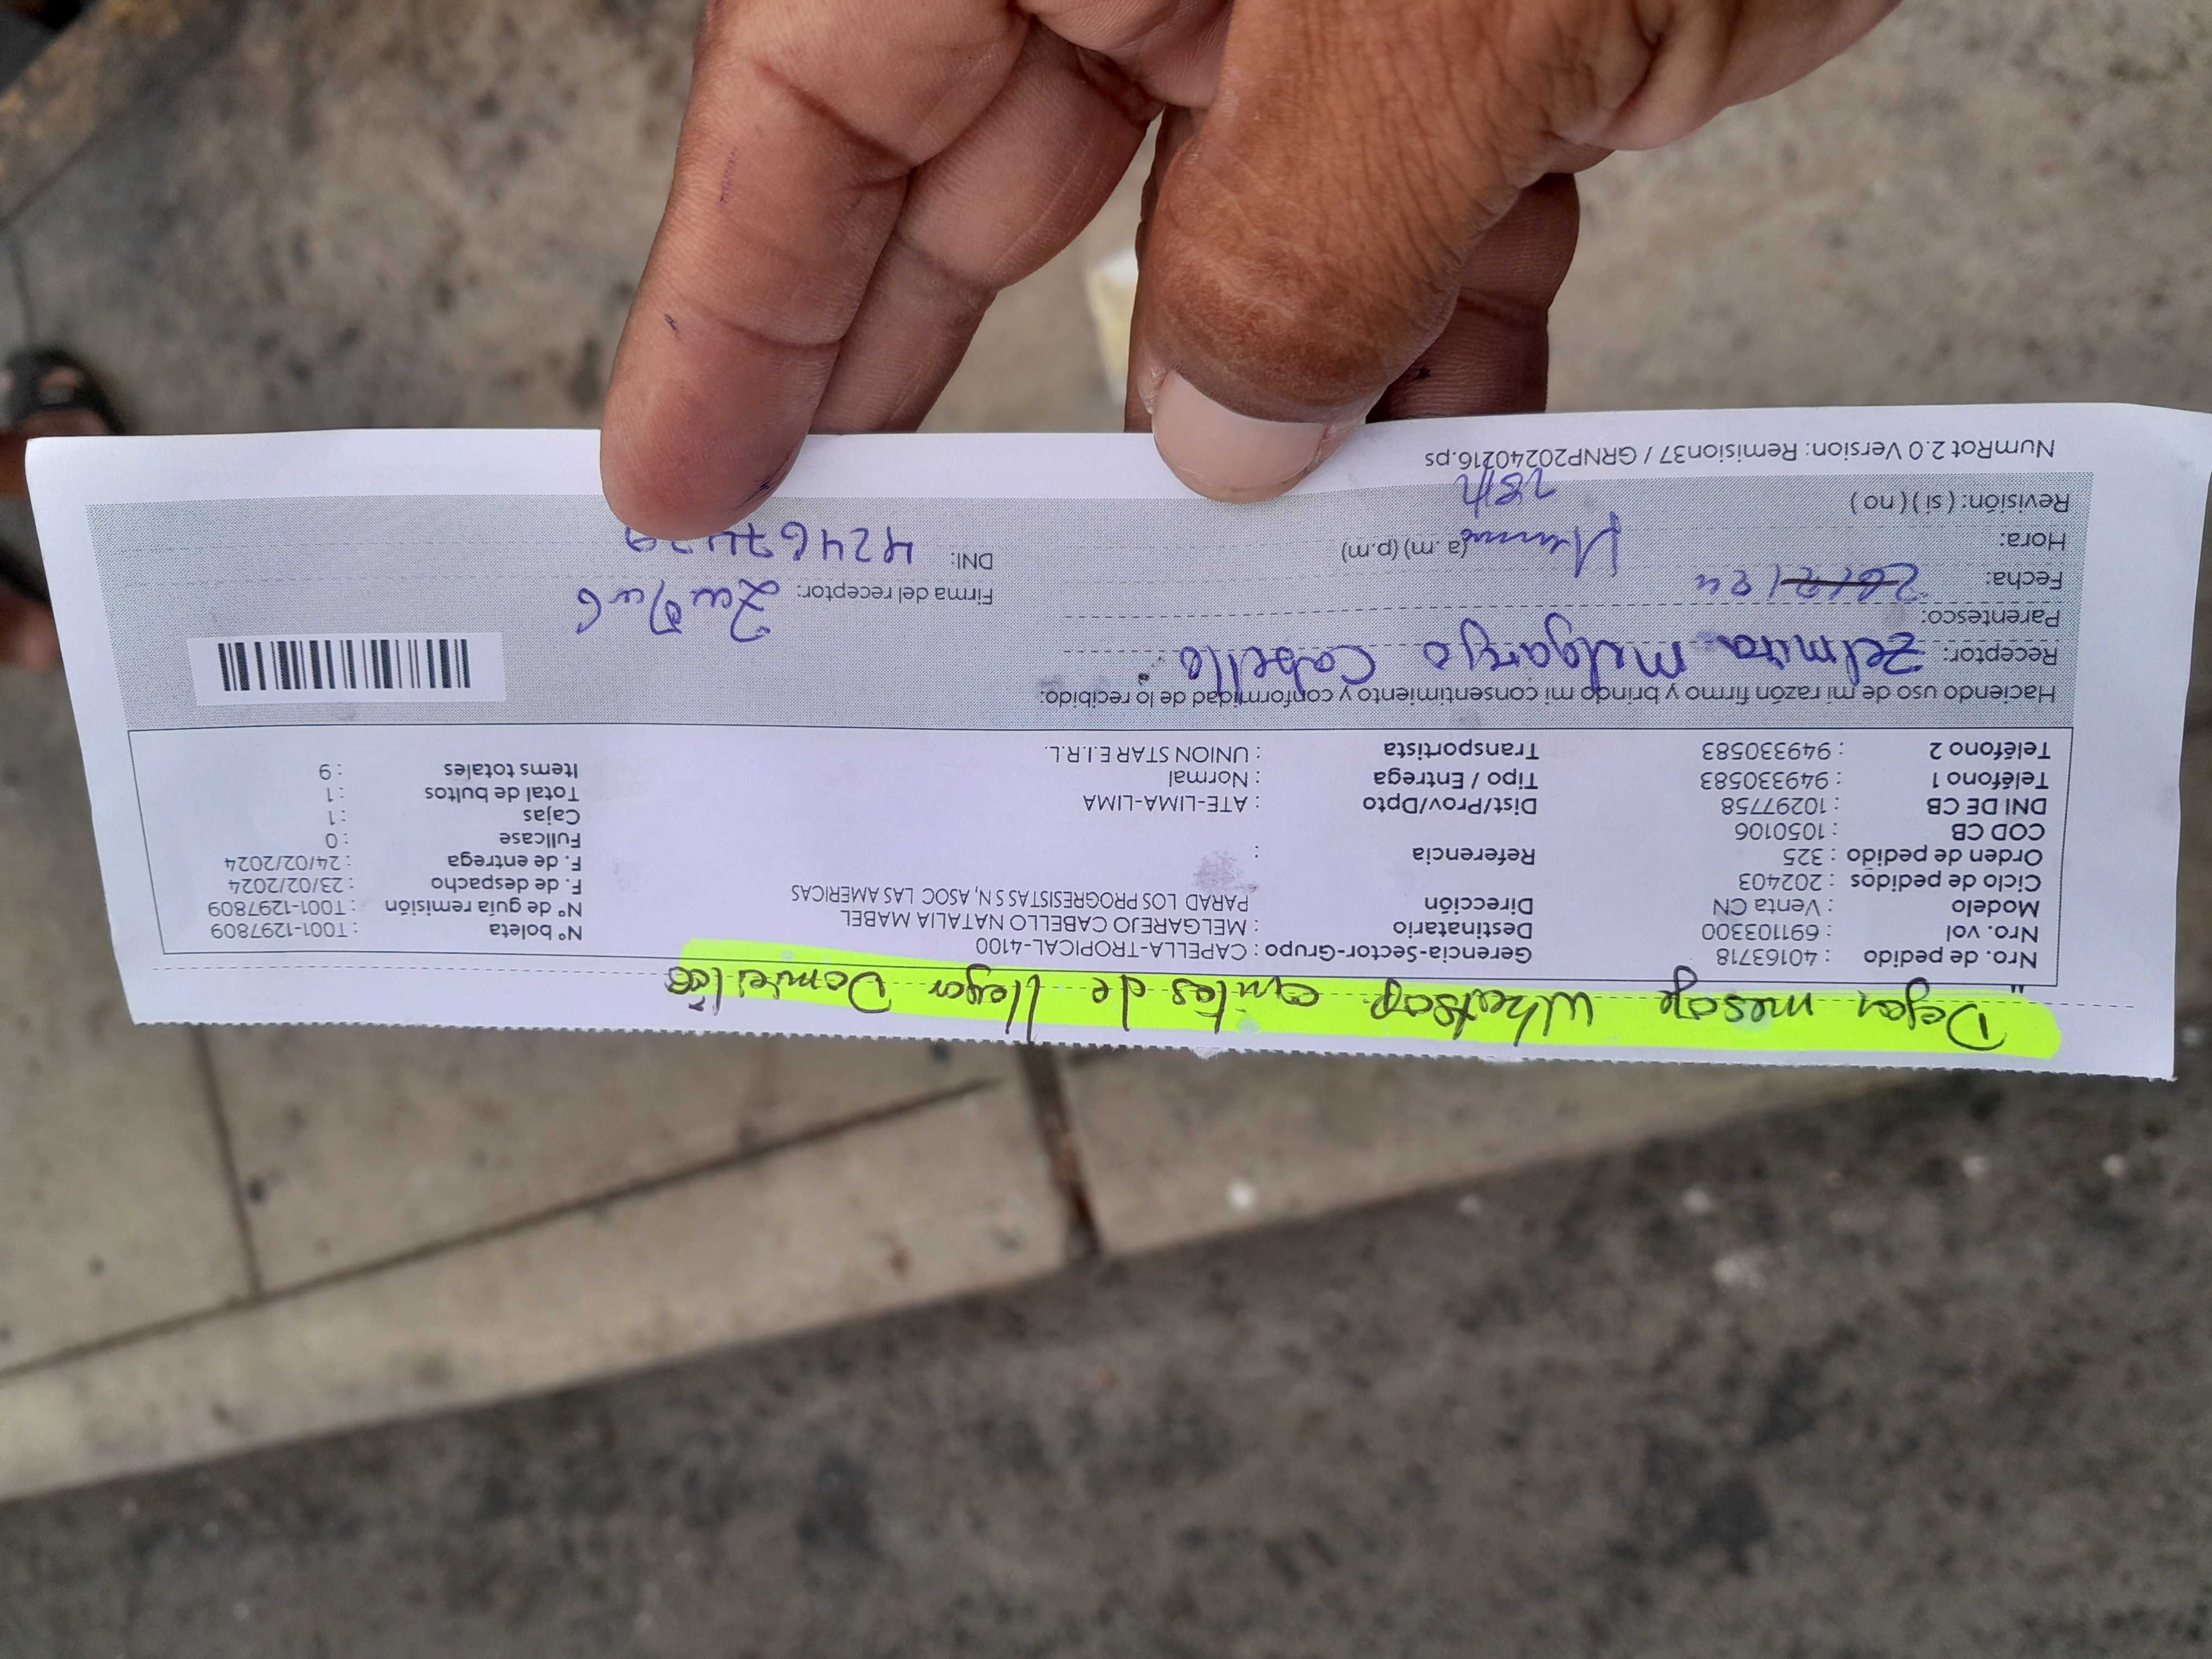 Dejar mesaje Whatsap antes de llegar Domicilio
Nro. de pedido : 40163718
Nro. vol : 691103300
Modelo : Venta CN
Ciclo de pedidos : 202403
Orden de pedido : 325
COD CB : 1050106
DNI DE CB : 10297758
Teléfono 1 : 949330583
Teléfono 2 : 949330583
Gerencia-Sector-Grupo : CAPELLA-TROPICAL-4100
Destinatario : MELGAREJO CABELLO NATALIA MABEL
Dirección PARAD LOS PROGRESISTAS S N, ASOC LAS AMERICAS
Referencia :
Dist/Prov/Dpto : ATE-LIMA-LIMA
Tipo / Entrega : Normal
Transportista : UNION STAR E.I.R.L.
N° boleta : T001-1297809
N° de guía remisión : T001-1297809
F. de despacho : 23/02/2024
F. de entrega : 24/02/2024
Fullcase : 0
Cajas : 1
Total de bultos : 1
Items totales : 9
Haciendo uso de mi razón firmo y brindo mi consentimiento y conformidad de lo recibido:
Receptor: Zelmira Melgarejo Cabello
Parentesco:
Fecha:
Hora: (a. m) (p.m)
Revisión: ( si ) ( no )
Firma del receptor:
DNI:
NumRot 2.0 Version: Remision37 / GRNP20240216.ps